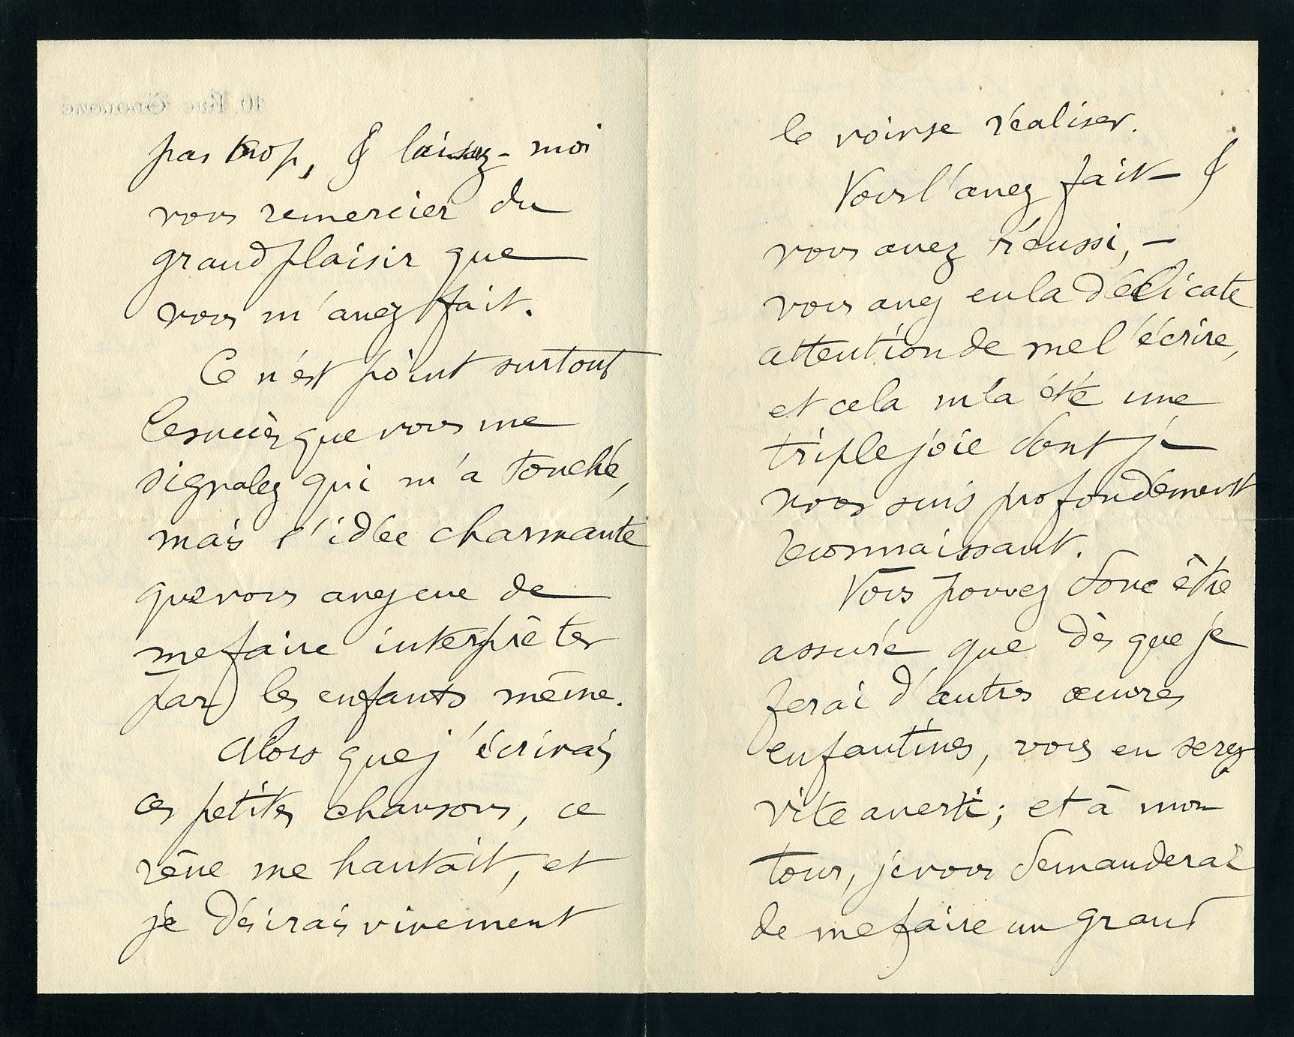 10, Rue
pas trop, & laissez-moi
vous remercier du
grand plaisir que
vous m'avez fait.
Ce n'est point surtout
le succès que vous me
signalez qui m'a touché,
mais l'idée charmante
que vous avez eue de
me faire interprêter
par les enfants même.
Alors que j'écrivais
ces petites chansons, ce
rêve me hantait, et
je désirais vivement
le voir se réaliser.
Vous l'avez fait — &
vous avez réussi, —
vous avez eu la délicate
attention de me l'écrire,
et cela m'a été une
triple joie dont je
vous suis profondément
reconnaissant.
Vous pouvez donc être
assuré que dès que je
ferai d'autres œuvres
enfantines, vous en serez
vite averti; et à mon
tour, je vous demanderai
de me faire un grand